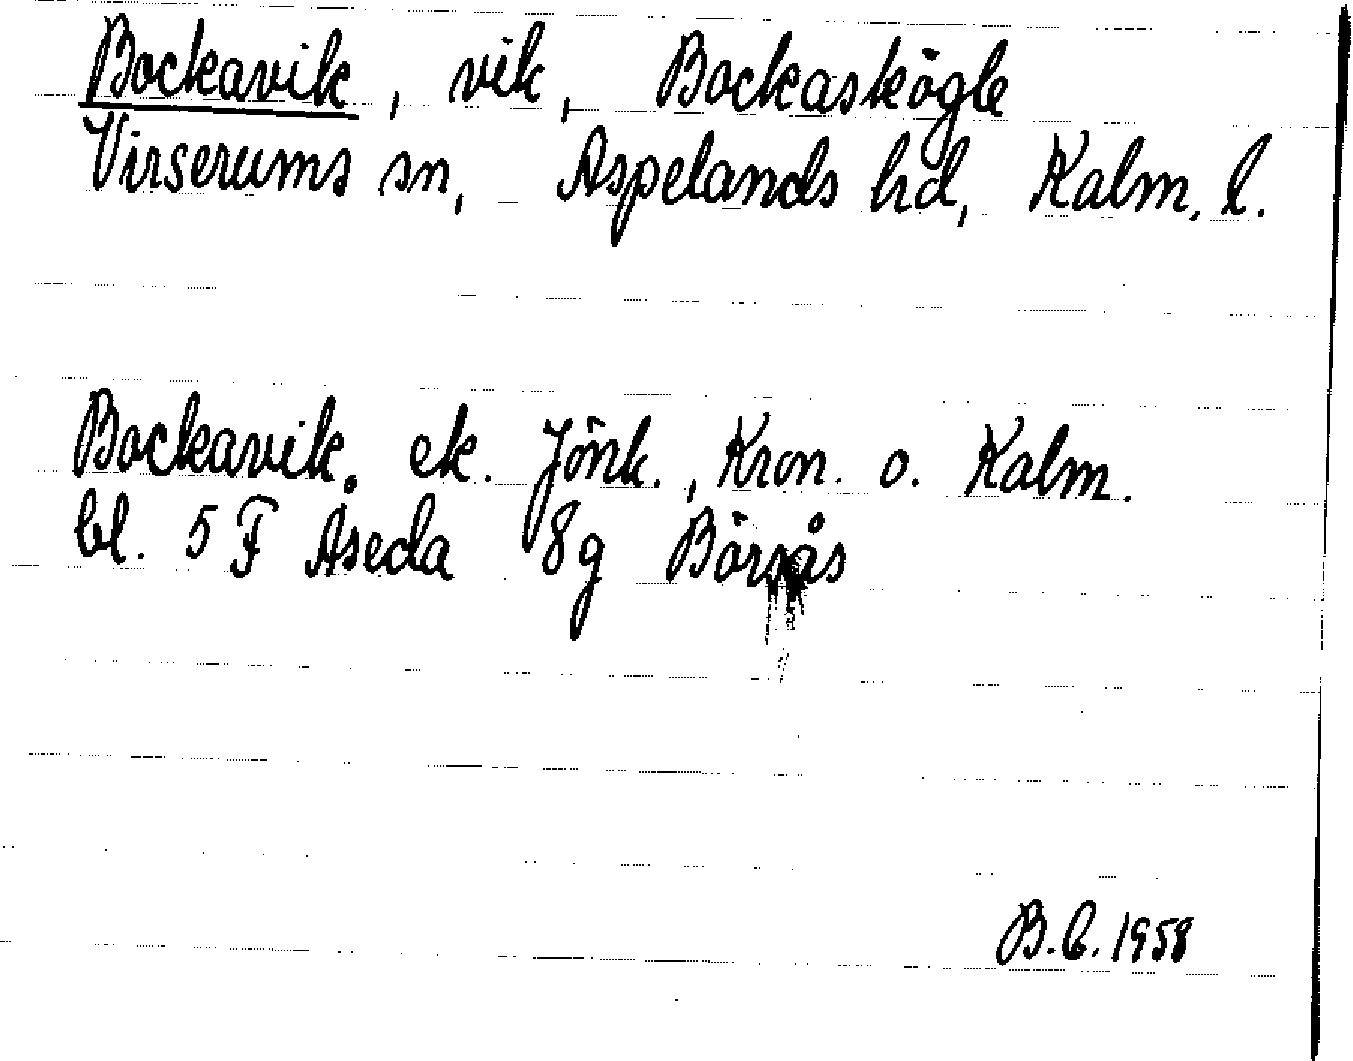 Bockavik, vik, Bockaskögle
Virserums sn, Aspelands hd, Kalm. l.
Bockavik. ek. Jönk., Kron. o. Kalm.
bl. 5 F Åseda 8g Börsås
B.C. 1958